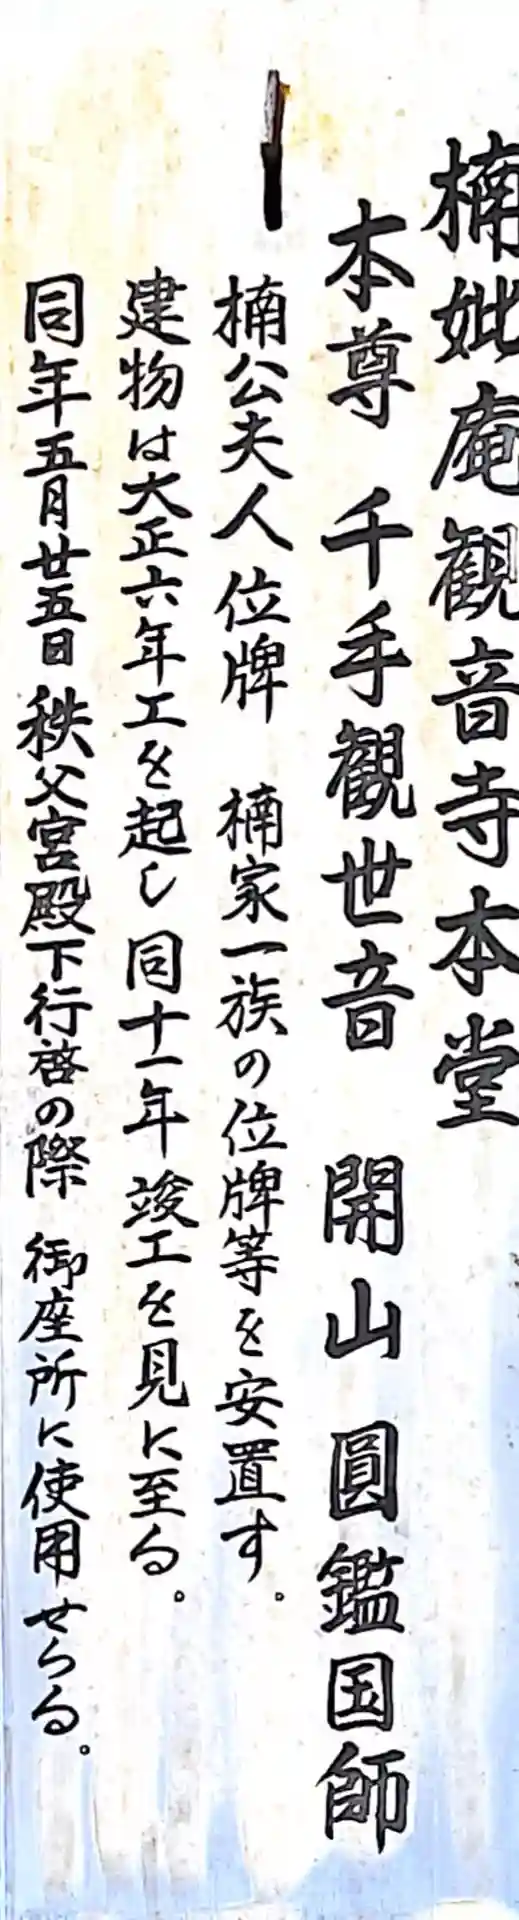 楠妣庵観音寺本堂
本尊 千手観世音 開山 圓鑑国師
楠公夫人位牌 楠家一族の位牌等を安置す。
建物は大正六年工を起し同十一年竣工を見に至る。
同年五月廿五日秩父宮殿下行啓の際 御座所に使用せらる。